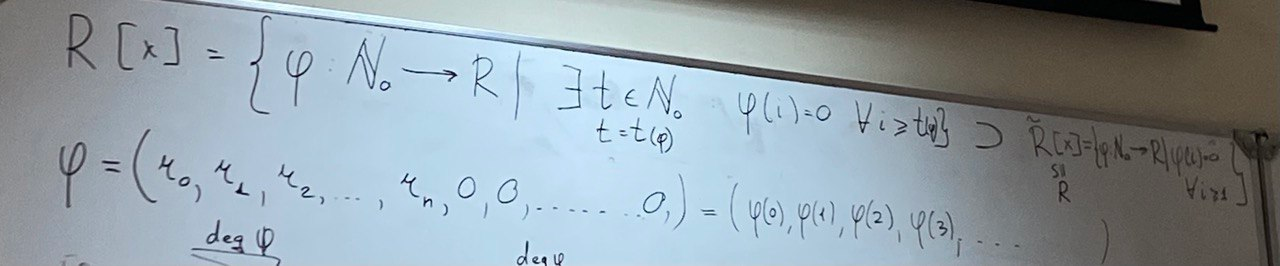 R[x] = { φ : N₀ → R | ∃ t ∈ N₀ φ(i)=0 ∀ i ≥ t(φ)} ⊃ R̃[x]={φ:N₀→R|φ(i)=0 ∀i≥1}
t = t(φ)
≅ R
φ = (r₀, r₁, r₂, ..., rₙ, 0, 0, ....... 0,) = (φ(0), φ(1), φ(2), φ(3), ... )
deg φ deg φ